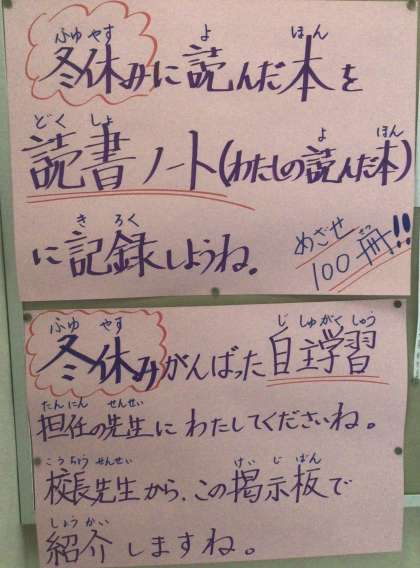 冬休みに読んだ本を
読書ノート(わたしの読んだ本)
に記録しようね。
めざせ
100冊!!
冬休みがんばった自主学習
担任の先生にわたしてくださいね。
校長先生から、この掲示板で
紹介しますね。